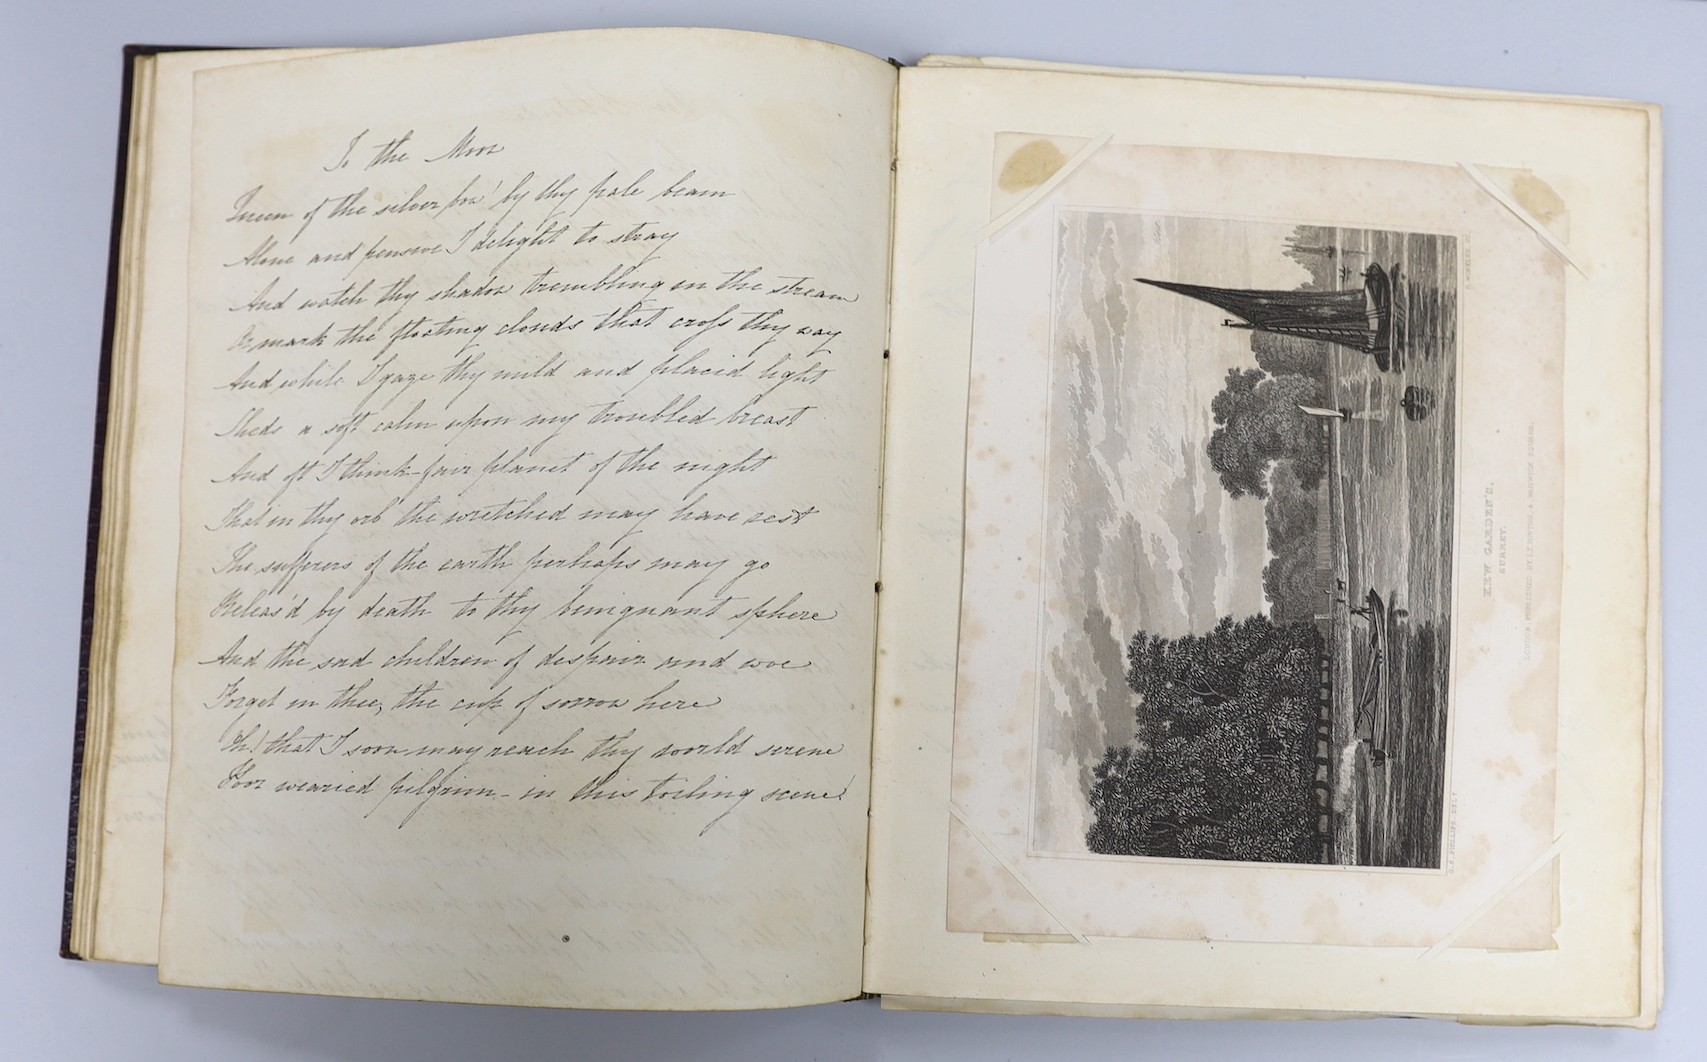 To the Moon
Queen of the silver bow! by thy pale beam
Alone and pensive I delight to stray
And watch thy shadow trembling in the stream
Or mark the floating clouds that cross thy way
And while I gaze thy mild and placid light
Sheds a soft calm upon my troubled breast
And oft I think-fair planet of the night
That in thy orb the wretched may have rest
The sufferers of the earth perhaps may go
Releas'd by death to thy benignant sphere
And the sad children of despair and woe
Forget in thee, the cup of sorrow here
Oh! that I soon may reach thy world serene
Poor wearied pilgrim - in this toiling scene!
KEW GARDEN'S.
SURREY.